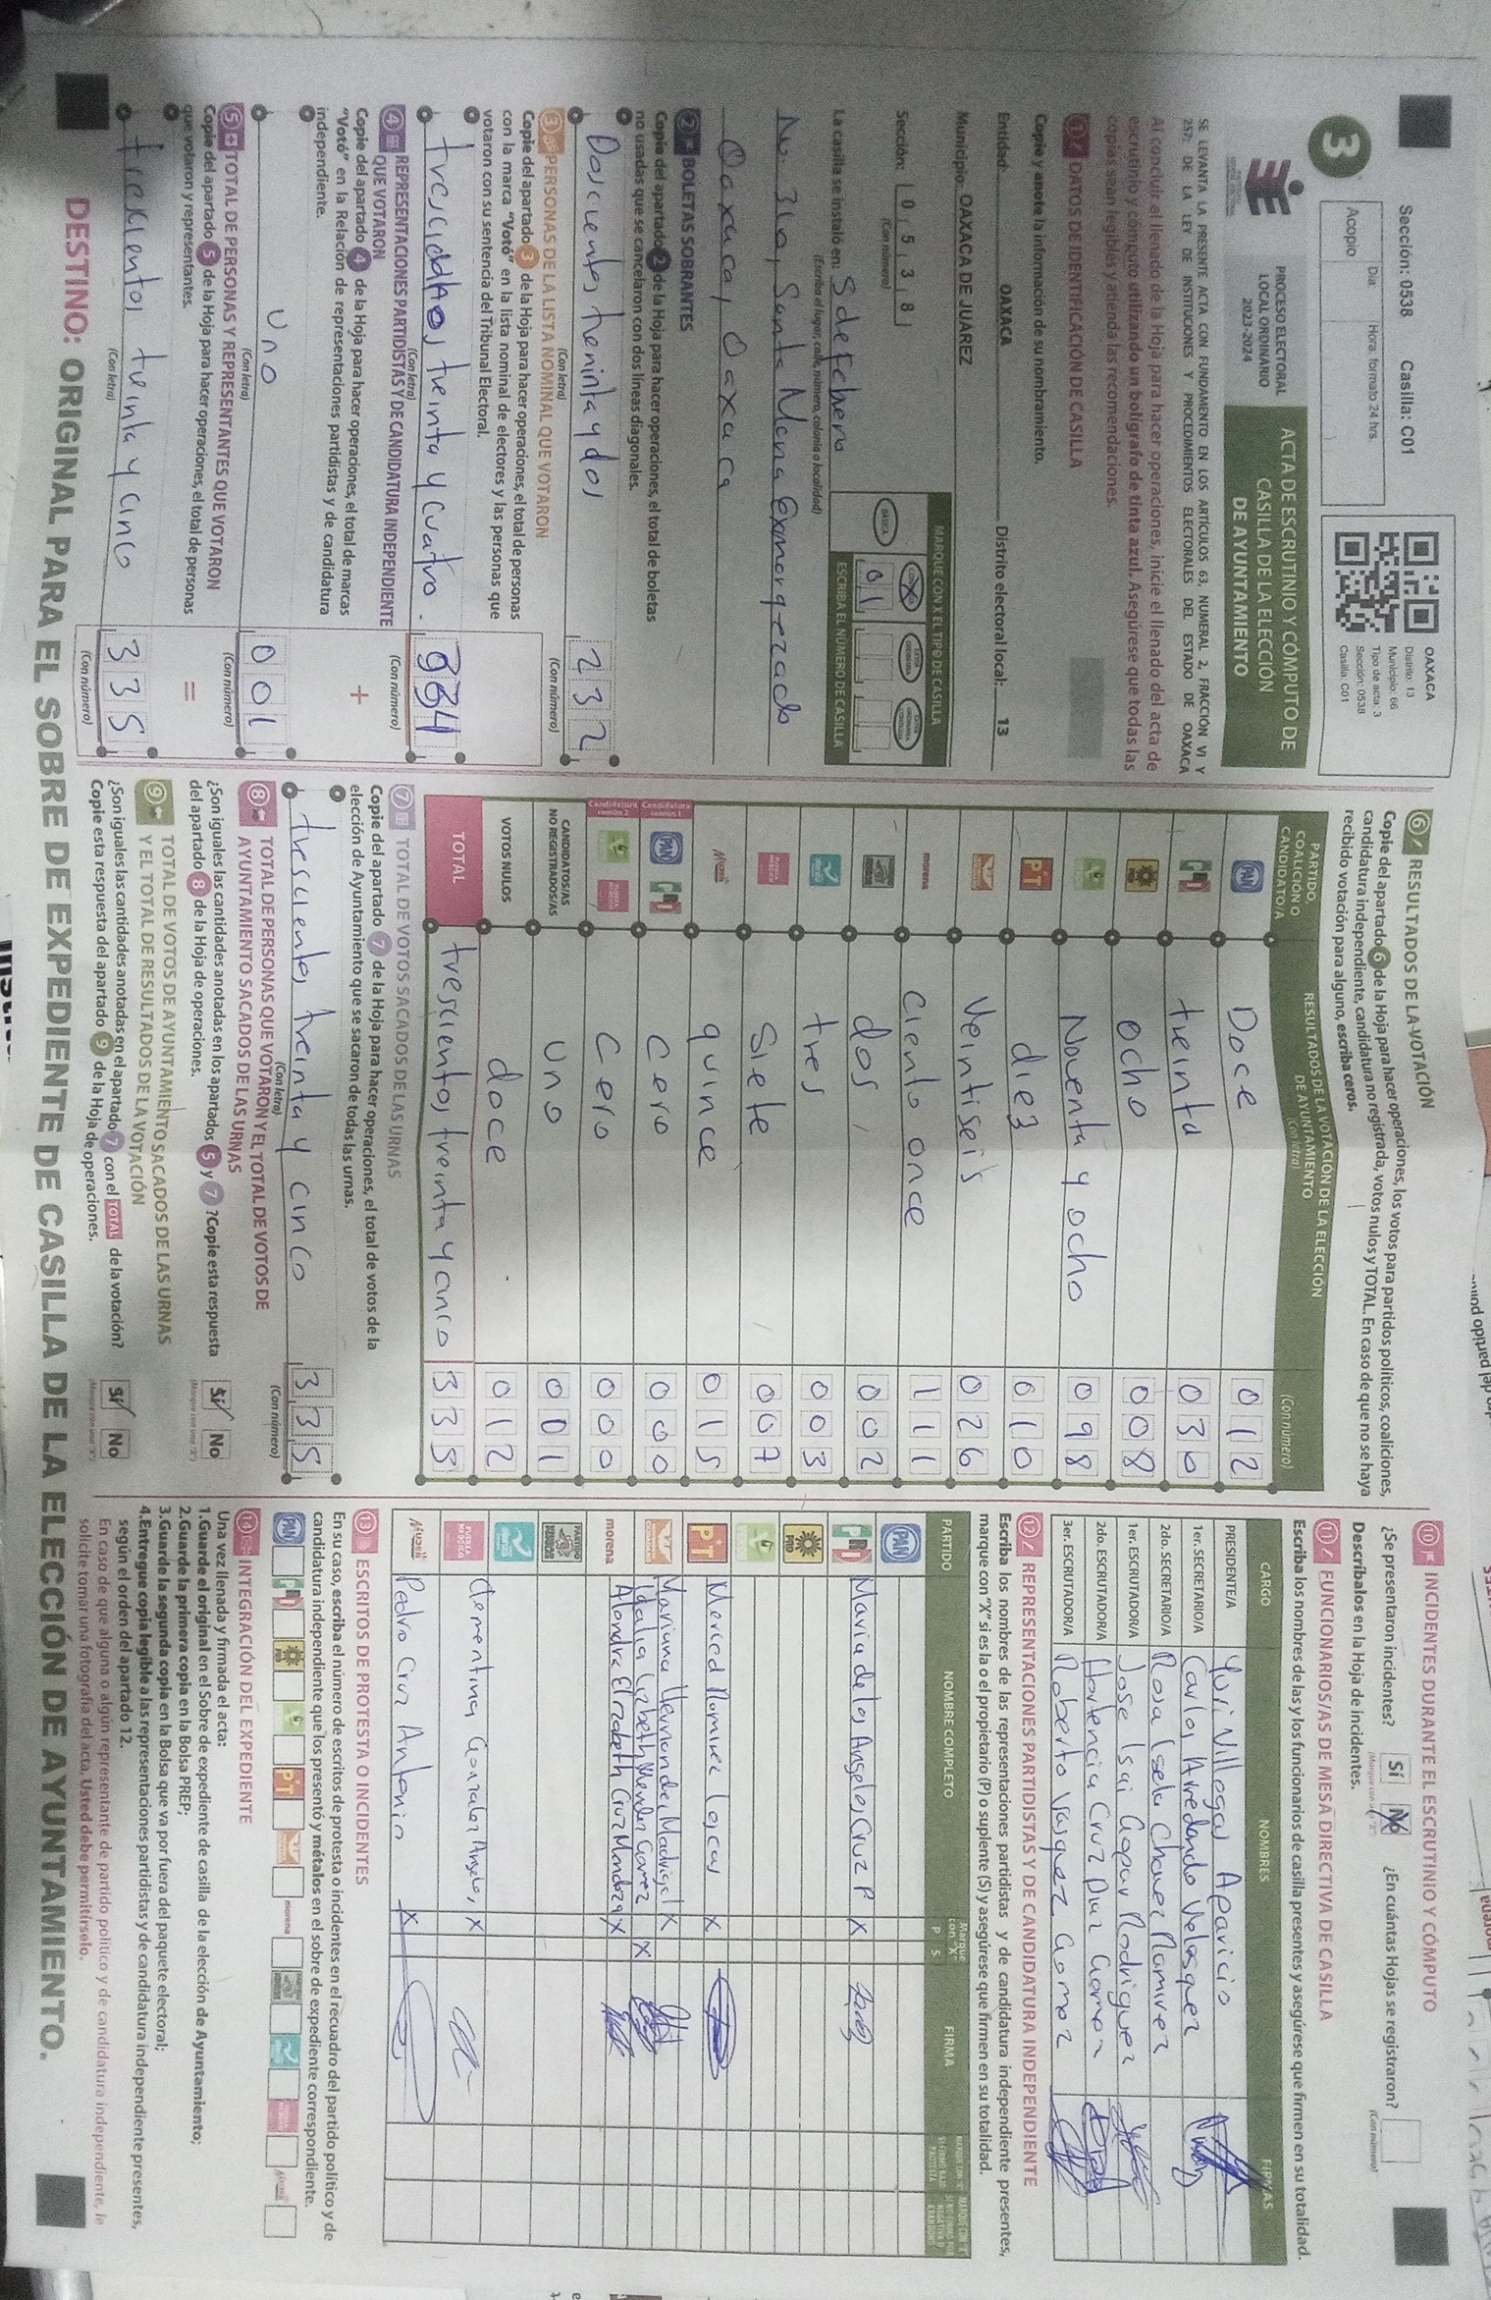 Sección: 0538 Casilla: C01
Día: Hora: formato 24 hrs.
Acopio
OAXACA
Distrito: 13
Municipio: 66
Tipo de acta: 3
Sección: 0538
Casilla: C01
3
PROCESO ELECTORAL
LOCAL ORDINARIO
2023-2024
ACTA DE ESCRUTINIO Y CÓMPUTO DE
CASILLA DE LA ELECCIÓN
DE AYUNTAMIENTO
SE LEVANTA LA PRESENTE ACTA CON FUNDAMENTO EN LOS ARTÍCULOS 63, NUMERAL 2, FRACCIÓN VI Y
257; DE LA LEY DE INSTITUCIONES Y PROCEDIMIENTOS ELECTORALES DEL ESTADO DE OAXACA
Al concluir el llenado de la Hoja para hacer operaciones, inicie el llenado del acta de
escrutinio y cómputo utilizando un bolígrafo de tinta azul. Asegúrese que todas las
copias sean legibles y atienda las recomendaciones.
1 DATOS DE IDENTIFICACIÓN DE CASILLA
Copie y anote la información de su nombramiento.
Entidad: OAXACA Distrito electoral local: 13
Municipio: OAXACA DE JUÁREZ
Sección: 0 5 3 8
(Con número)
MARQUE CON X EL TIPO DE CASILLA
BÁSICA
ESCRIBA EL NÚMERO DE CASILLA
01
La casilla se instaló en: 5 de Febrero
(Escriba el lugar, calle, número, colonia o localidad)
No. 310, Santa Maria Exmarquezado
Oaxaca, Oaxaca
2 BOLETAS SOBRANTES
Copie del apartado 2 de la Hoja para hacer operaciones, el total de boletas
no usadas que se cancelaron con dos líneas diagonales.
Doscientos treninta y dos 232
(Con letra) (Con número)
3 PERSONAS DE LA LISTA NOMINAL QUE VOTARON
Copie del apartado 3 de la Hoja para hacer operaciones, el total de personas
con la marca "Votó" en la lista nominal de electores y las personas que
votaron con su sentencia del Tribunal Electoral.
trescientos treinta y cuatro. 334
(Con letra) (Con número)
4 REPRESENTACIONES PARTIDISTAS Y DE CANDIDATURA INDEPENDIENTE
QUE VOTARON
Copie del apartado 4 de la Hoja para hacer operaciones, el total de marcas
"Votó" en la Relación de representaciones partidistas y de candidatura
independiente.
+
uno 001
(Con letra) (Con número)
5 TOTAL DE PERSONAS Y REPRESENTANTES QUE VOTARON
Copie del apartado 5 de la Hoja para hacer operaciones, el total de personas
que votaron y representantes.
=
trescientos treinta y cinco 335
(Con letra) (Con número)
6 RESULTADOS DE LA VOTACIÓN
Copie del apartado 6 de la Hoja para hacer operaciones, los votos para partidos políticos, coaliciones,
candidatura independiente, candidatura no registrada, votos nulos y TOTAL. En caso de que no se haya
recibido votación para alguno, escriba ceros.
PARTIDO, COALICIÓN O CANDIDATO/A
RESULTADOS DE LA VOTACIÓN DE LA ELECCIÓN DE AYUNTAMIENTO
(Con letra) (Con número)
PAN Doce 012
PRI treinta 030
PRD ocho 008
Noventa y ocho 098
PT diez 010
Veintiseis 026
morena ciento once 111
dos 002
tres 003
Siete 007
Mujer quince 015
Candidatura común 1 PAN PRI cero 000
Candidatura común 2 cero 000
CANDIDATOS/AS NO REGISTRADOS/AS uno 001
VOTOS NULOS doce 012
TOTAL trescientos treinta y cinco 335
7 TOTAL DE VOTOS SACADOS DE LAS URNAS
Copie del apartado 7 de la Hoja para hacer operaciones, el total de votos de la
elección de Ayuntamiento que se sacaron de todas las urnas.
trescientos treinta y cinco 335
(Con letra) (Con número)
8 TOTAL DE PERSONAS QUE VOTARON Y EL TOTAL DE VOTOS DE
AYUNTAMIENTO SACADOS DE LAS URNAS
¿Son iguales las cantidades anotadas en los apartados 5 y 7? Copie esta respuesta
del apartado 8 de la Hoja de operaciones.
Sí No
9 TOTAL DE VOTOS DE AYUNTAMIENTO SACADOS DE LAS URNAS
Y EL TOTAL DE RESULTADOS DE LA VOTACIÓN
¿Son iguales las cantidades anotadas en el apartado 7 con el TOTAL de la votación?
Copie esta respuesta del apartado 9 de la Hoja de operaciones.
Sí No
10 INCIDENTES DURANTE EL ESCRUTINIO Y CÓMPUTO
¿Se presentaron incidentes? Sí No ¿En cuántas Hojas se registraron?
(Con número)
Descríbalos en la Hoja de incidentes.
11 FUNCIONARIOS/AS DE MESA DIRECTIVA DE CASILLA
Escriba los nombres de las y los funcionarios de casilla presentes y asegúrese que firmen en su totalidad.
CARGO NOMBRES FIRMAS
PRESIDENTE/A Yuri Villegas Aparicio
1er. SECRETARIO/A Carlos Arredondo Velasquez
2do. SECRETARIO/A Rosa Isela Chavez Ramirez
1er. ESCRUTADOR/A Jose Isai Gopar Rodriguez
2do. ESCRUTADOR/A Hortencia Cruz Diaz Gomez
3er. ESCRUTADOR/A Roberto Vasquez Gomez
12 REPRESENTACIONES PARTIDISTAS Y DE CANDIDATURA INDEPENDIENTE
Escriba los nombres de las representaciones partidistas y de candidatura independiente presentes,
marque con "X" si es la o el propietario (P) o suplente (S) y asegúrese que firmen en su totalidad.
PARTIDO NOMBRE COMPLETO Marque con "X" P S FIRMA
PAN
PRI Maria de los Angeles Cruz P X
PRD
PT Merced Ramirez X
Mariana Hernandez Madrigal X
Idalia Lizbeth Mendez Gamez X
morena Alondra Elizabeth Cruz Mendoza X
Clementina Gonzalez Angeles X
Mujer Pedro Cruz Antonio X
13 ESCRITOS DE PROTESTA O INCIDENTES
En su caso, escriba el número de escritos de protesta o incidentes en el recuadro del partido político y de
candidatura independiente que los presentó y métalos en el sobre de expediente correspondiente.
PAN PRI PRD PT morena
14 INTEGRACIÓN DEL EXPEDIENTE
Una vez llenada y firmada el acta:
1.Guarde el original en el Sobre de expediente de casilla de la elección de Ayuntamiento;
2.Guarde la primera copia en la Bolsa PREP;
3.Guarde la segunda copia en la Bolsa que va por fuera del paquete electoral;
4.Entregue copia legible a las representaciones partidistas y de candidatura independiente presentes,
según el orden del apartado 12.
En caso de que alguna o algún representante de partido político y de candidatura independiente, le
solicite tomar una fotografía del acta. Usted debe permitírselo.
DESTINO: ORIGINAL PARA EL SOBRE DE EXPEDIENTE DE CASILLA DE LA ELECCIÓN DE AYUNTAMIENTO.